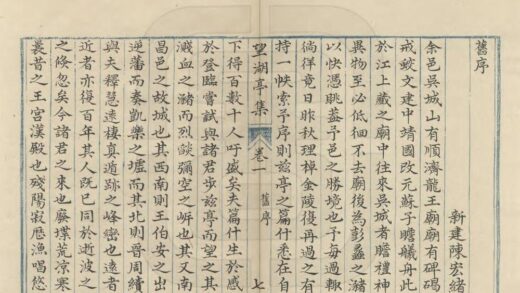 舊序
新建陳宏緒
余邑吳城山有順濟龍王廟廟有碑碣
戒蛟文建中靖國改元蘇子瞻艤舟此
於江上藏之廟中往來吳城者瞻禮神
異物至必低徊不去廟後為彭蠡之瀦
以快憑眺蓋予邑之勝境也予每過輒
徜徉竟日昨秋理棹金陵復再過之有
持一帙索予序則玆亭之篇什悉在自
望湖亭集 卷一 舊序 七
下得百數十人吁盛矣夫篇什生於感
於登臨嘗試與諸君步玆亭而望之其
濺血之瀦而烈燄彌空之岍也其又南
昌邑之故城也其西南則王伯安之出
逆藩而奏凱樂之墟而其北則晉周續
與夫釋慧遠棲真遁跡之峰巒也遠者
近者亦復百年其人既已同於逝波之
之倏忽矣今諸君之來也廢堞荒涼寒
曩昔之王宮漢殿也殘陽寂歷漁唱悠